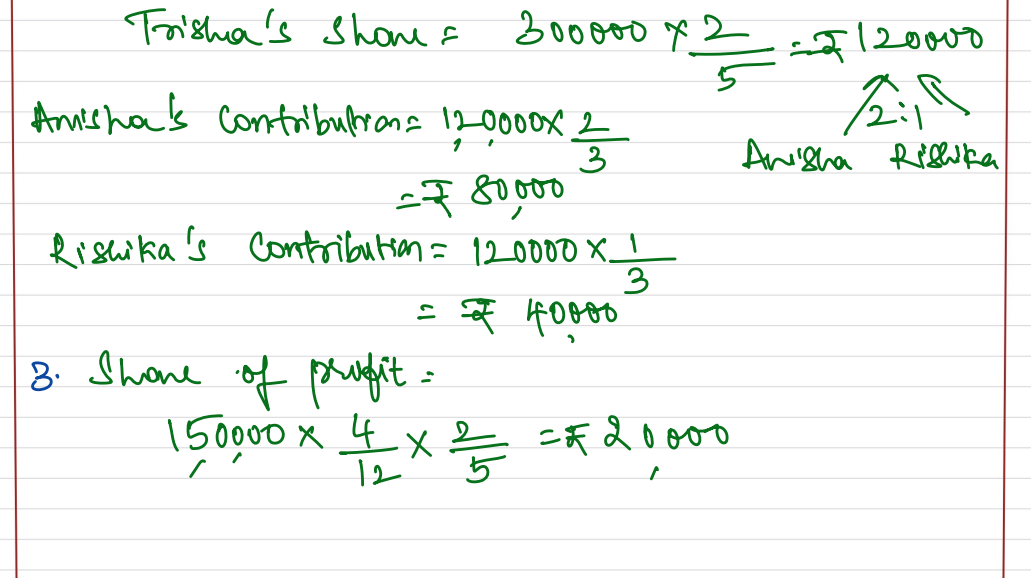 Trisha's share = 300000 × 2/5 = ₹120000
2:1
Anisha's Contribution = 1,20,000 × 2/3
Anisha Rishika
= ₹ 80,000
Rishika's Contribution = 120000 × 1/3
= ₹ 40,000
3. Share of profit =
1,50,000 × 4/12 × 2/5 = ₹ 20,000